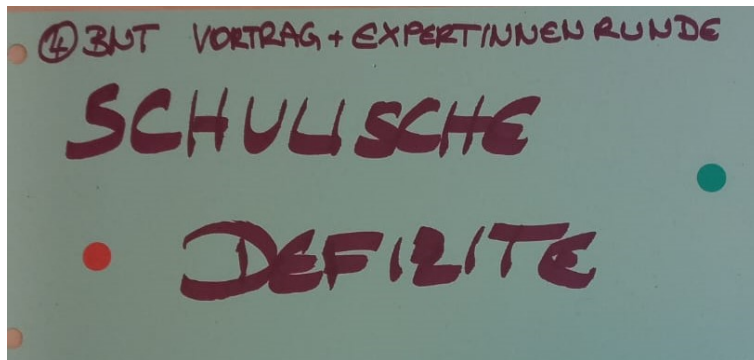 ④ BNT VORTRAG + EXPERTINNENRUNDE
SCHULISCHE
DEFIZITE